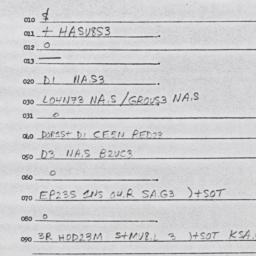 010 $
011 + HASU8S3
012 O
013 —
020 D1 NA.S3
030 LO4N73 NA.S / GROUS3 NA.S
031 O
040 DOR1S+ D1 CE5N PED23
050 D3 NA.S B2UC3
060 O
070 EP23S 2NS O4.R SAG3 )+SOT
080 O
090 3R HOD23M S+MJ8.L 3 )+SOT KSA.